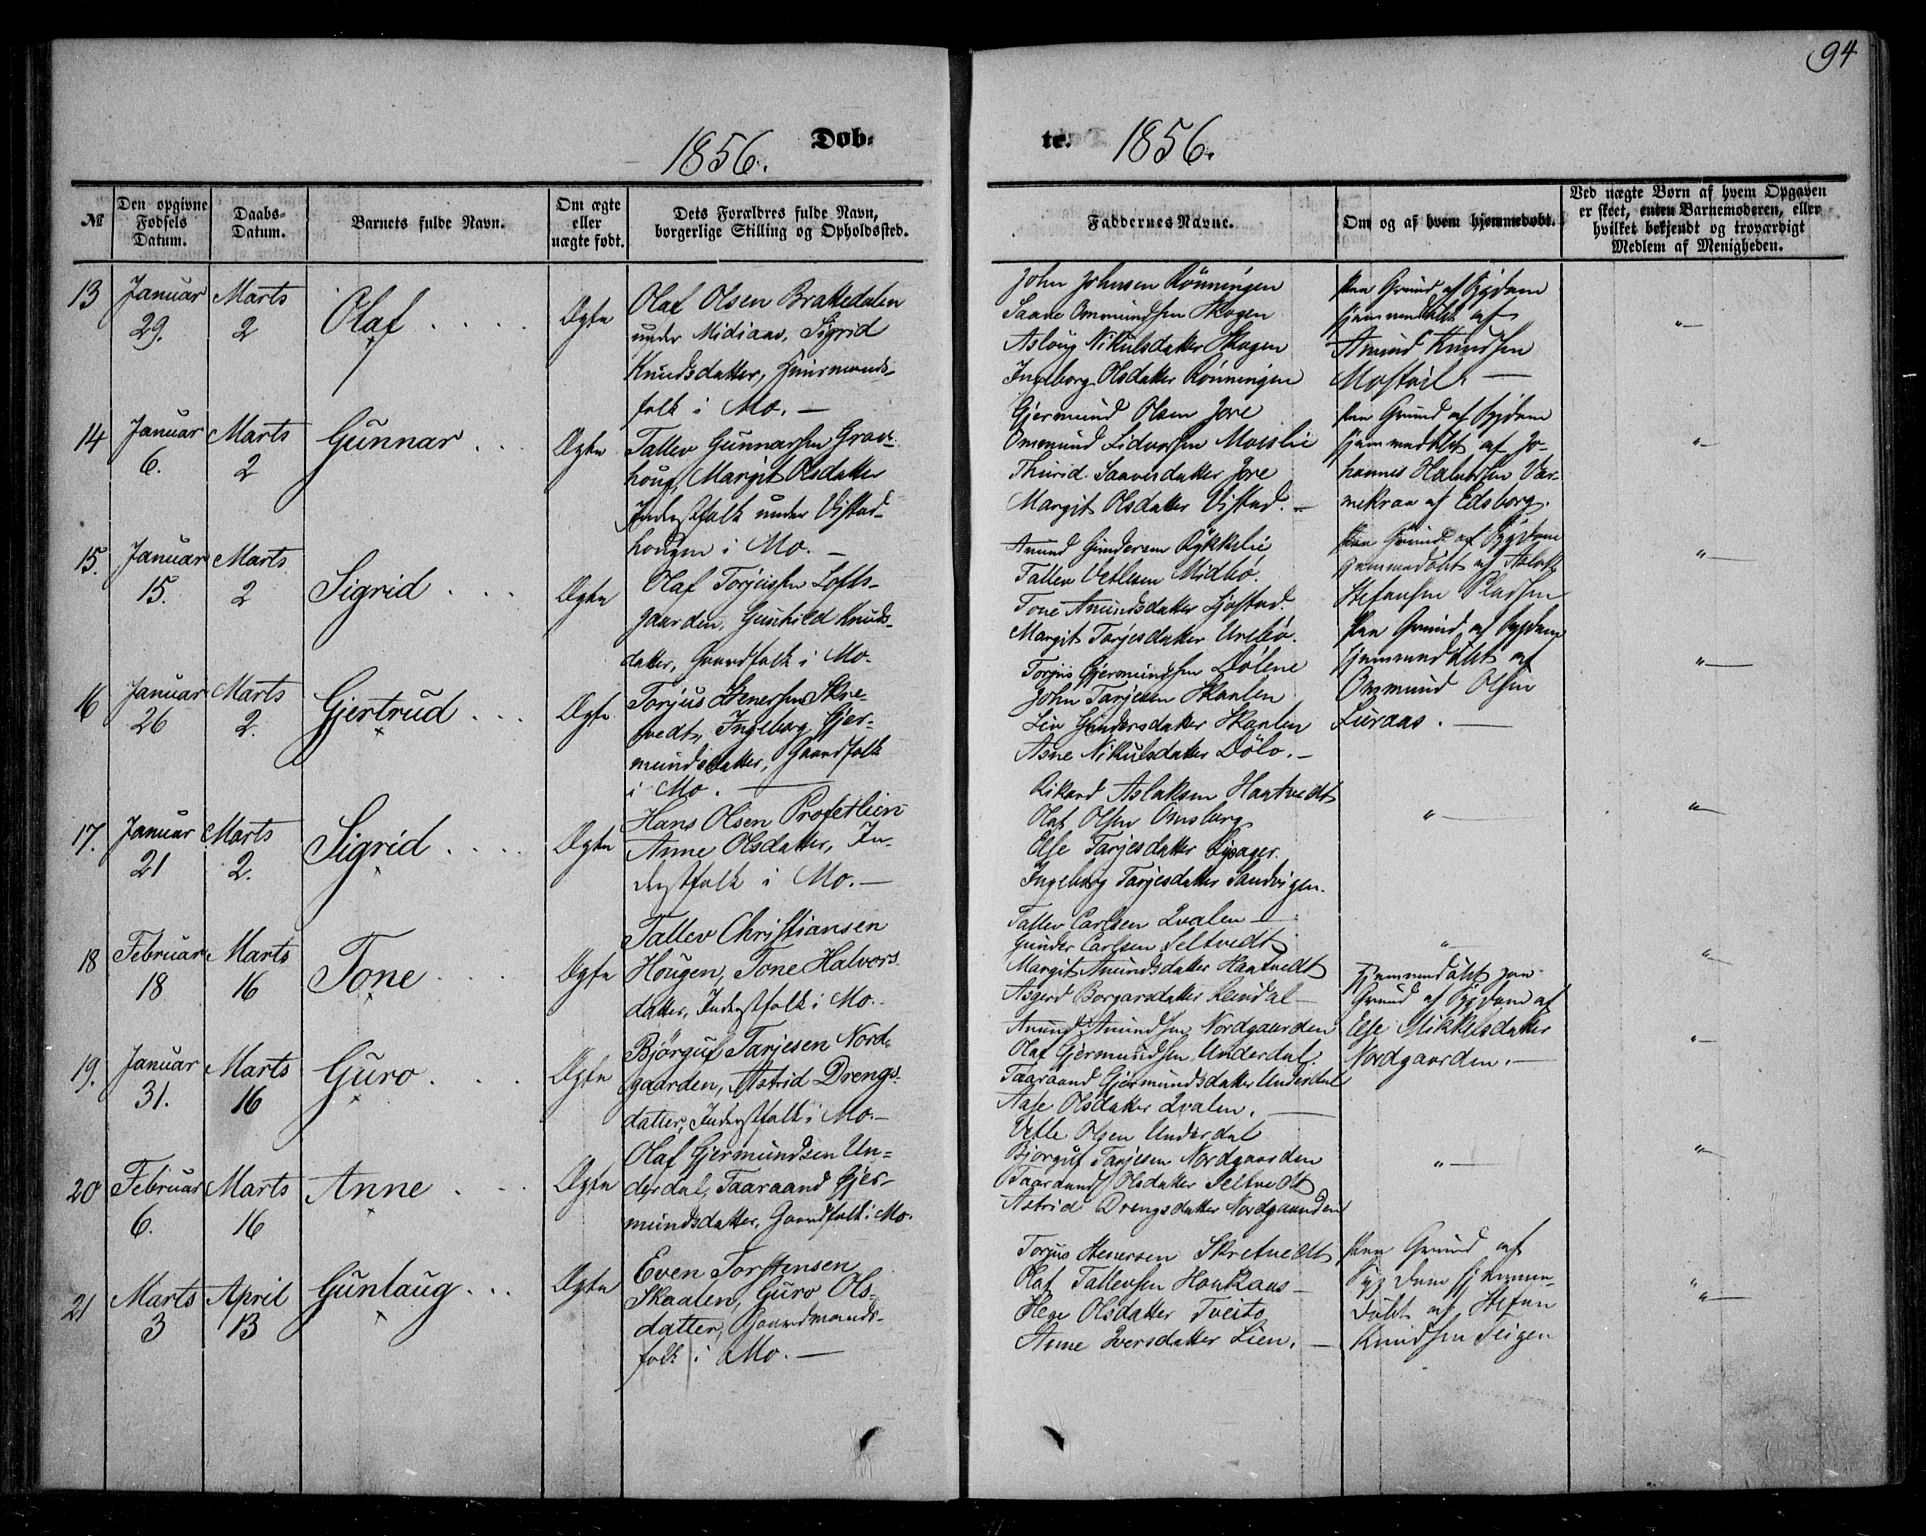 94
1856. Døb-
te. 1856.
№
Den opgivne Fødsels Datum.
Daabs-Datum.
Barnets fulde Navn.
Om ægte eller uægte født.
Dets Forældres fulde Navn, borgerlige Stilling og Opholdssted.
Faddernes Navne.
Om og af hvem hjemmedøbt.
Ved uægte Børn af hvem Opgaven er skeet, enten Barnemoderen, eller hvilket bekjendt og troværdigt Medlem af Menigheden.
13
Januar
29.
Marts
2
Olaf
Ægte
Olaf Olsen Brattedalen
under Midiaas, Sigrid
Knudsdatter, Huusmands-
folk i Mo. —
John Johnsen Rönningen
Saave Ommundsen Skogen
Asloug Nikulsdatter Skogen
Ingeborg Olsdatter Rönningen
paa Grund af Sygdom
hjemmedöbt af
Amund Knudsen
Mostøil. —
"—
14
Januar
6.
Marts
2
Gunnar
Ægte
Tallev Gunnarsen Grav-
houg, Margit Olsdatter
Inderstfolk under Vistad-
hougen i Mo. —
Gjermund Olsen Jore
Ommund Lidvorsen Mosslie
Thurid Saavesdatter Jore
Margit Olsdatter Vistad. —
paa Grund af Sygdom
hjemmedöbt af Jo-
hannes Halvorsen Var-
mekraa af Edsborg.
"—
15.
Januar
15.
Marts
2
Sigrid
Ægte
Olaf Torjusen Lofts-
gaarden, Gunhild Knuds-
datter, Gaardfolk i Mo.
Amund Gundersen Rykkelie
Tallev Vetlesen Midbö.
Tone Amundsdatter
Margit Tarjesdatter Urebö.
paa Grund af Sygdom
hjemmedöbt af Aslak
Stefansen Pladsen
"—
16
Januar
26
Marts
2.
Gjertrud
Ægte
Torjus Stenersen Skre-
tvedt, Ingeborg Gjer-
mundsdatter, Gaardfolk
i Mo. —
Torjus Gjermundsen Dölene
John Tarjesen Skaalen
Liv Gundersdatter Skaalen
Asne Nikulsdatter Dölo. —
paa Grund af Sygdom
hjemmedöbt af
Ommund Olsen
Luraas. —
"—
17.
Januar
21
Marts
2.
Sigrid
Ægte
Hans Olsen Profetlien
Anne Olsdatter, In-
derstfolk i Mo. —
Rikard Aslaksen Haatvedt
Olaf Olsen Omsberg
Else Tarjesdatter
Ingeborg Tarjesdatter Sandvigen.
"—
"—
18
Februar
18
Marts
16
Tone
Ægte
Tallev Christiansen
Hougen, Tone Halvors-
datter, Inderstfolk i Mo.
Tallev Carlsen Qvalen —
Gunder Carlsen Seltvedt
Margit Amundsdatter Haatvedt
Asgerd Borgarsdatter
"—
"—
19.
Januar
31.
Marts
16
Guro
Ægte
Björguf Tarjesen Nord-
gaarden, Astrid Drengs-
datter, Inderstfolk i Mo. —
Amund Amundsen Nordgaarden
Olaf Gjermundsen Underdal.
Taaraand Gjermundsdatter Underdal
Aase Olsdatter Qvalen. —
hjemmedöbt paa
Grund af Sygdom af
Else Mikkelsdatter
Nordgaarden. —
"—
20
Februar
6.
Marts
16
Anne
Ægte
Olaf Gjermundsen Un-
derdal, Taaraand Gjer-
mundsdatter, Gaardfolk i Mo.
Vetle Olsen Underdal
Björguf Tarjesen Nordgaarden
Taaraand Olsdatter Seltvedt
Astrid Drengsdatter Nordgaarden
"—
"—
21
Marts
3
April
13
Gunlaug
Ægte
Even Torstensen
Skaalen, Guro Ols-
datter, Gaardmands-
folk i Mo. —
Torjus Stenersen Skretvedt
Olaf Tallevsen Haukaas —
Hege Olsdatter Tveito
Anne Iversdatter Lien. —
paa Grund af
Sygdom hjemme-
döbt af Stefan
Knudsen Teigen
"—